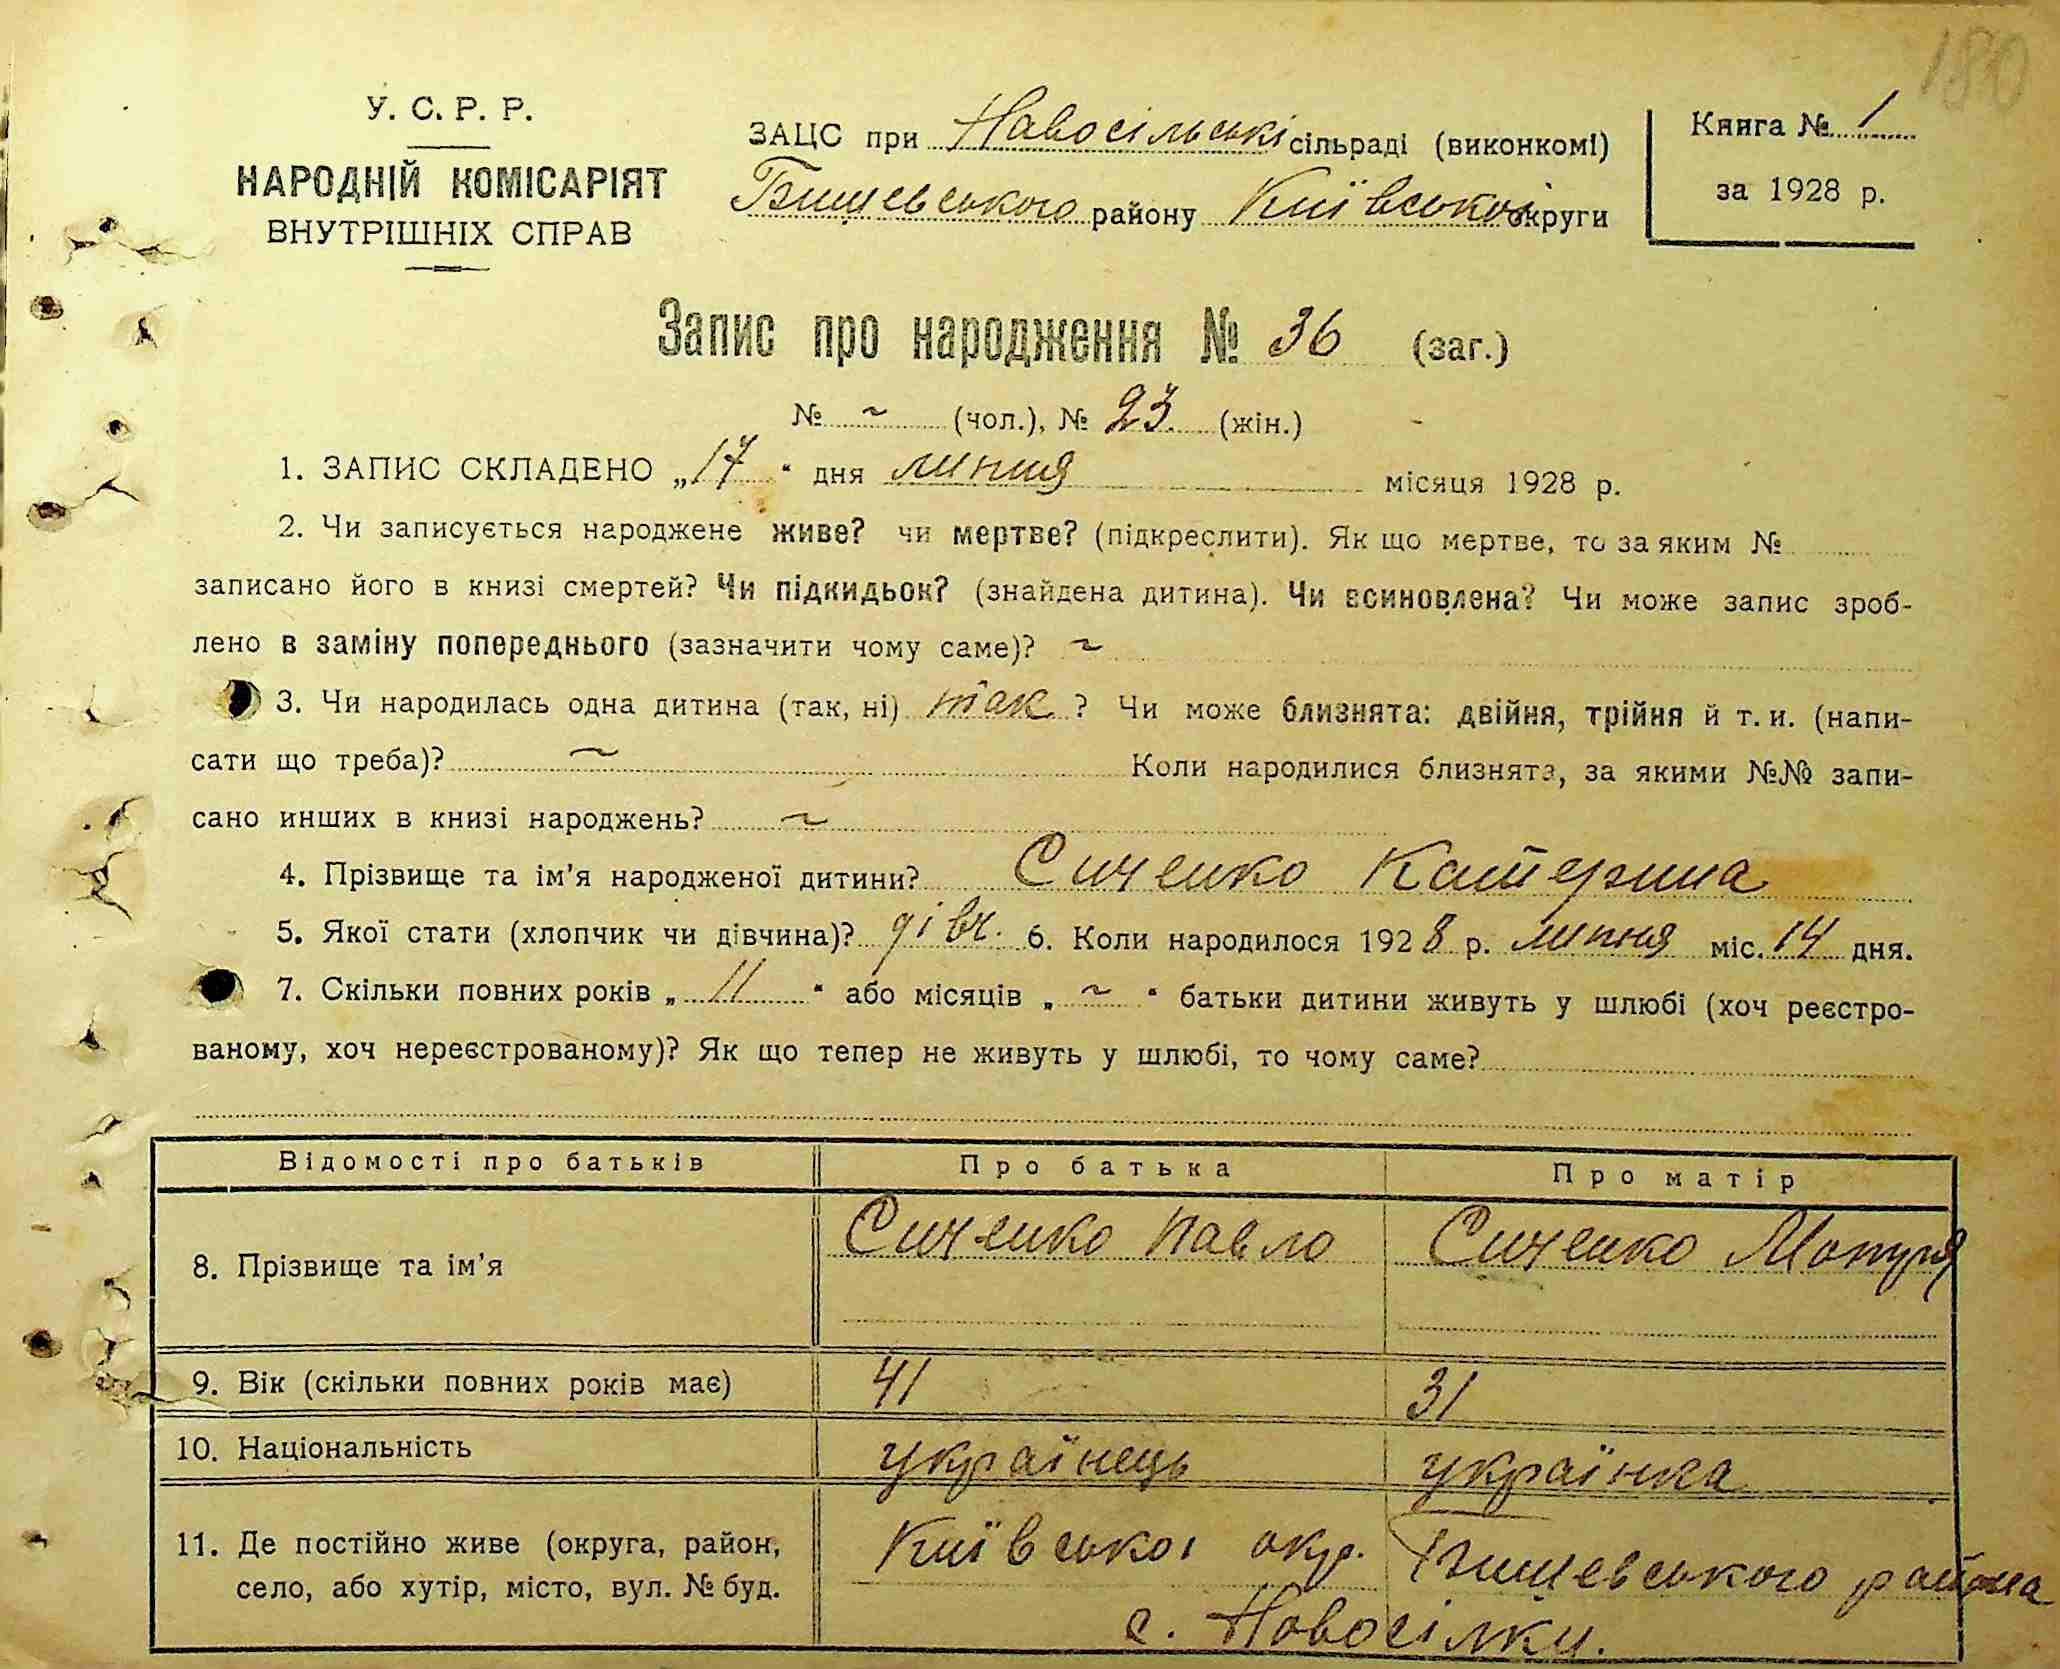 180
У. С. Р. Р.
НАРОДНІЙ КОМІСАРІЯТ
ВНУТРІШНІХ СПРАВ
ЗАЦС при Новосільські сільраді (виконкомі)
Бишевського району Київської округи
Книга № 1
за 1928 р.
Запис про народження № 36 (заг.)
№ ~ (чол.), № 23 (жін.)
1. ЗАПИС СКЛАДЕНО „17“ дня липня місяця 1928 р.
2. Чи записується народжене живе? чи мертве? (підкреслити). Як що мертве, то за яким №
записано його в книзі смертей? Чи підкидьок? (знайдена дитина). Чи всиновлена? Чи може запис зроб-
лено в заміну попереднього (зазначити чому саме)? ~
3. Чи народилась одна дитина (так, ні) так ? Чи може близнята: двійня, трійня й т. и. (напи-
сати що треба)? ~ Коли народилися близнята, за якими №№ запи-
сано инших в книзі народжень? ~
4. Прізвище та ім’я народженої дитини? Сиченко Катерина
5. Якої стати (хлопчик чи дівчина)? дівч. 6. Коли народилося 1928 р. липня міс. 14 дня.
7. Скільки повних років „11“ або місяців „~“ батьки дитини живуть у шлюбі (хоч реєстро-
ваному, хоч нереєстрованому)? Як що тепер не живуть у шлюбі, то чому саме?
Відомості про батьків Про батька Про матір
8. Прізвище та ім’я Сиченко Павло Сиченко
9. Вік (скільки повних років має) 41 31
10. Національність українець українка
11. Де постійно живе (округа, район, Київської окр. Бишевського района
село, або хутір, місто, вул. № буд. с. Новосілки.